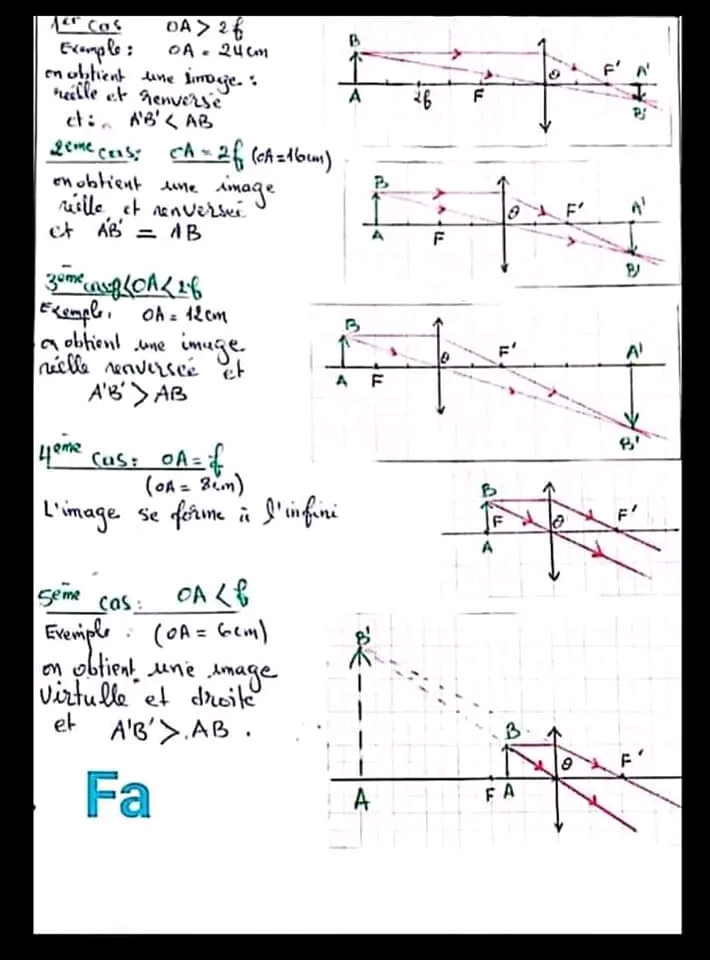 1er cas OA > 2f
Exemple : OA = 24cm
on obtient une image :
réelle et renversé
et : A'B' < AB
B
A
2f
F
O
F'
A'
B'
2ème cas: OA = 2f (OA=16cm)
on obtient une image
réelle et renversée
et A'B' = AB
B
A
F
O
F'
A'
B'
3ème cas f<OA<2f
Exemple. OA = 12cm
on obtient une image
réelle renversée et
A'B' > AB
B
A
F
O
F'
A'
B'
4ème cas: OA = f
(OA = 8cm)
L'image se forme à l'infini
B
F
A
O
F'
5ème cas: OA < f
Exemple : (OA = 6cm)
on obtient une image
virtulle et droite
et A'B' > AB .
B'
A
B
F
A
O
F'
Fa